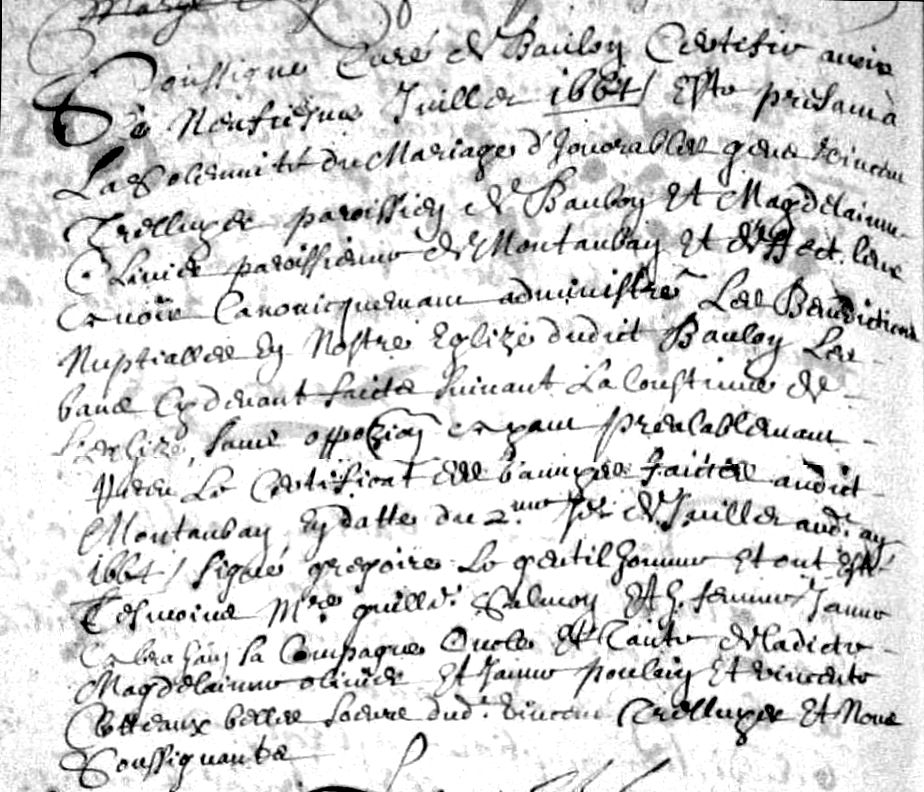 Soussigné Curé de Baulon Certifie avoir
Ce Neufiesme Juillet 1664 / Esté présant à
La Solemnité du Mariage d'honorables gens Vincent
Trelluyer paroissien de Baulon Et Magdelainne
Olivier paroissienne de Montauban Et de
avoir Canonicquemant administré Les Benedictions
Nuptialles En Nostre Eglize dudit Baulon Les
bans Cy devant faicts Suivant La Coustume de
l'eglize, sans oppozion ayant prealablemant
Le Certificat des bannyes faictes audict
Montauban En datte du 2.me de Juillet aud. an
1664 / Signé gregoire Le gentilhomme Et ont Esté
Tesmoins M.re guill. Salmon Et sa femme Janne
sa Compagne Oncle Et Tante de ladicte
Magdelainne olivier Et Janne poulain Et vincente
belles Soeurs dud. Vincent Trelluyer Et Nous
Soussignants